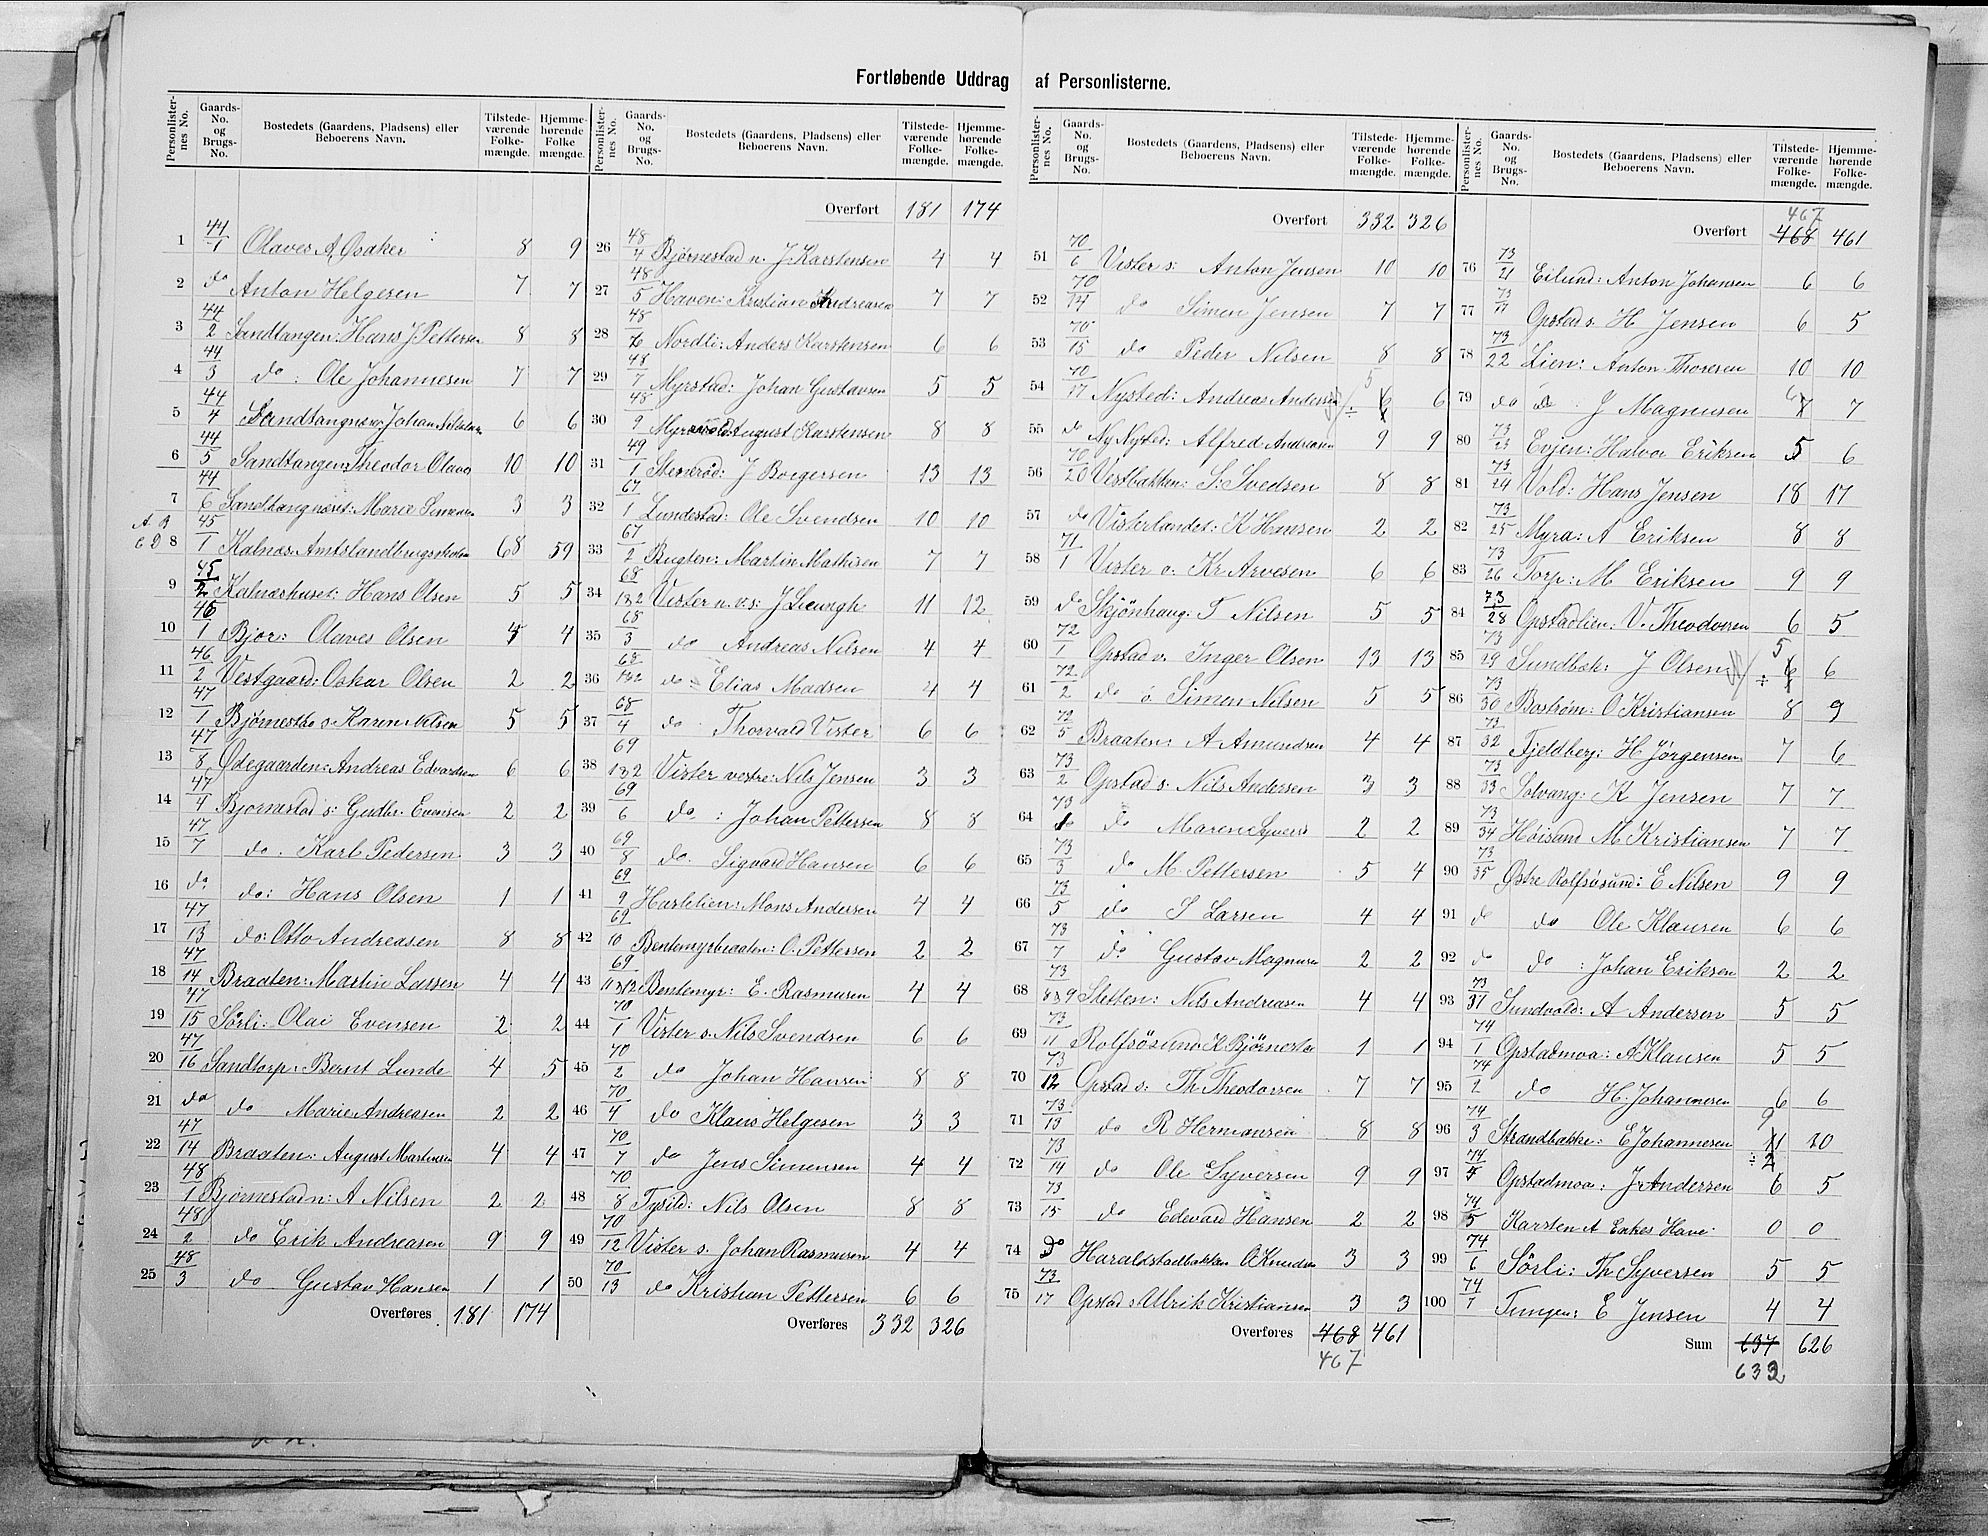 Fortløbende Uddrag af Personlisterne.
Personlisternes No. Gaards-No. og Brugs-No. Bostedets (Gaardens, Pladsens) eller Beboerens Navn. Tilstedeværende Folkemængde. Hjemmehørende Folkemængde.
1 44/1 Olaves A Opaker 8 9
2 do Anton Helgesen 7 7
3 44/2 Sandtangen: Hans J. Pettersen 8 8
4 44/3 do: Ole Johannesen 7 7
5 44/4 Sandtangnæs: Johan Nilsen 6 6
6 44/5 Sandtangen: Theodor Olava 10 10
7 44/6 Sandtangnæset: Marie Simensen 3 3
A B C D 8 45/1 Kalnæs Amtslandbrugsskole 68 59
9 45/2 Kalnæshuset: Hans Olsen 5 5
10 46/1 Bjor: Olaves Olsen 4 4
11 46/2 Vestgaard: Oskar Olsen 2 2
12 47/1 Bjørnestad s. Karen Nilsen 5 5
13 47/8 Ødegaarden: Andreas Edvardsen 6 6
14 47/4 Bjørnestad s: Gudbr. Evensen 2 2
15 47/7 do. Karl Pedersen 3 3
16 do. do: Hans Olsen 1 1
17 47/13 do: Otto Andreasen 8 8
18 47/14 Braaten: Martin Larsen 4 4
19 47/15 Sörli: Olai Evensen 2 2
20 47/16 Sandtorp: Bernt Lunde 4 5
21 do do Marie Andreasen 2 2
22 47/14 Braaten: August Martinsen 4 4
23 48/1 Bjørnestad n: A Nilsen 2 2
24 48/2 do Erik Andreasen 9 9
25 48/3 do Gustav Hansen 1 1
Overføres 181 174
Personlisternes No. Gaards-No. og Brugs-No. Bostedets (Gaardens, Pladsens) eller Beboerens Navn. Tilstedeværende Folkemængde. Hjemmehørende Folkemængde.
Overført 181 174
26 48/4 Bjørnestad n. J. Karstensen 4 4
27 48/5 Haven: Kristian Andreasen 7 7
28 48/6 Nordli: Anders Karstensen 6 6
29 48/7 Myrstad: Johan Gustavsen 5 5
30 48/9 Myrvold: August Karstensen 8 8
31 49/1 Stenerød: J Borgersen 13 13
32 67/1 Lundestad: Ole Svendsen 10 10
33 67/2 Bugten: Martin Mathisen 7 7
34 68/1&2 Vister n. v. s: J Lieungh 11 12
35 68/3 do Andreas Nilsen 4 4
36 68/1&2 do Elias Madsen 4 4
37 68/4 do Thorvald Vister 6 6
38 69/1&2 Vister vestre: Nils Jensen 3 3
39 69/6 do: Johan Pettersen 8 8
40 69/8 do. Sigvard Hansen 6 6
41 69/9 Hastelien: Mons Andersen 4 4
42 69/10 Bentemyrbraaten: O. Pettersen 2 2
43 69/11&12 Bentemyr: E. Rasmusen 4 4
44 70/1 Vister s. Nils Svendsen 6 6
45 70/2 do Johan Hansen 8 8
46 70/4 do Klaus Helgesen 3 3
47 70/7 do Jens Simensen 4 4
48 70/8 Tysild: Nils Olsen 8 8
49 70/12 Vister s. Johan Rasmusen 4 4
50 70/13 do Kristian Pettersen 6 6
Overføres 332 326
Personlisternes No. Gaards-No. og Brugs-No. Bostedets (Gaardens, Pladsens) eller Beboerens Navn. Tilstedeværende Folkemængde. Hjemmehørende Folkemængde.
Overført 332 326
51 70/6 Vister s: Anton Jensen 10 10
52 70/14 do Simen Jensen 7 7
53 70/15 do Peder Nilsen 8 8
54 70/17 Nysted: Andreas Andersen 5 6 ÷1 6
55 do Ny Nysted: Alfred Andreasen 9 9
56 70/20 Vestbakken: S: Svedsen 8 8
57 do Visterlandet: K Hansen 2 2
58 71/1 Vister ø. Kr Arvesen 6 6
59 do Skjönhaug: T Nilsen 5 5
60 72/1 Opstad v. Inger Olsen 13 13
61 72/2 do ö Simen Nilsen 5 5
62 72/5 Braaten: A Amundsen 4 4
63 73/2 Opstad s. Nils Andersen 3 3
64 73 do Maren Syvers 2 2
65 73/3 do M. Pettersen 5 4
66 73/5 do S Larsen 4 4
67 73/7 do Gustav Magnusen 2 2
68 73/8&9 Sletten: Nils Andreasen 4 4
69 73/11 Rolfsösund K Bjørnestad 1 1
70 73/12 Opstad s: Th. Theodorsen 7 7
71 73/13 do R Hermansen 8 8
72 73/14 do Ole Syversen 9 9
73 73/15 do Edevard Hansen 2 2
74 do Haraldstadbakken O Knudsen 3 3
75 73/17 Opstad s Ulrik Kristiansen 3 3
Overføres 468 461
467
Personlisternes No. Gaards-No. og Brugs-No. Bostedets (Gaardens, Pladsens) eller Beboerens Navn. Tilstedeværende Folkemængde. Hjemmehørende Folkemængde.
467
Overført 468 461
76 73/21 Eilund: Anton Johansen 6 6
77 73/17 Opstad s. H Jensen 6 5
78 73/22 Lien: Anton Thoresen 10 10
79 do do J Magnusen 6 7 7
80 73/23 Evjen: Halvor Eriksen 5 6
81 73/24 Vold: Hans Jensen 18 17
82 73/25 Myra: A Eriksen 8 8
83 73/26 Torp: M Eriksen 9 9
84 73/28 Opstadlien: V. Theodorsen 6 5
85 73/29 Sundbak: J Olsen 5 6 ÷1 6
86 73/30 Boström: O Kristiansen 8 9
87 73/32 Fjeldberg: H Jørgensen 7 6
88 73/33 Solvang: K Jensen 7 7
89 73/34 Höisand M Kristiansen 7 7
90 73/35 Østre Rolfsösund: E Nilsen 9 9
91 do do Ole Klausen 6 6
92 do do: Johan Eriksen 2 2
93 73/37 Sundvold: A Andersen 5 5
94 74/1 Opstadmoa: A Klausen 5 5
95 74/2 do H. Johannesen 6 6
96 74/3 Strandbakke: E Johannesen 9 11 ÷2 10
97 74/5 Opstadmoa: J Andersen 6 5
98 74/5 Karsten A Enkes Have 0 0
99 74/6 Sörli: Th Syversen 5 5
100 74/7 Tungen: E Jensen 4 4
Sum 637 626
633